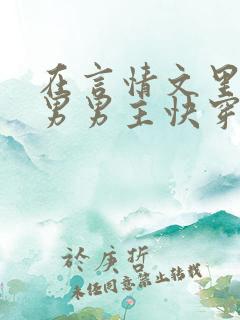 在言情文里
男男主快穿
於庚哲
未经同意禁止转载